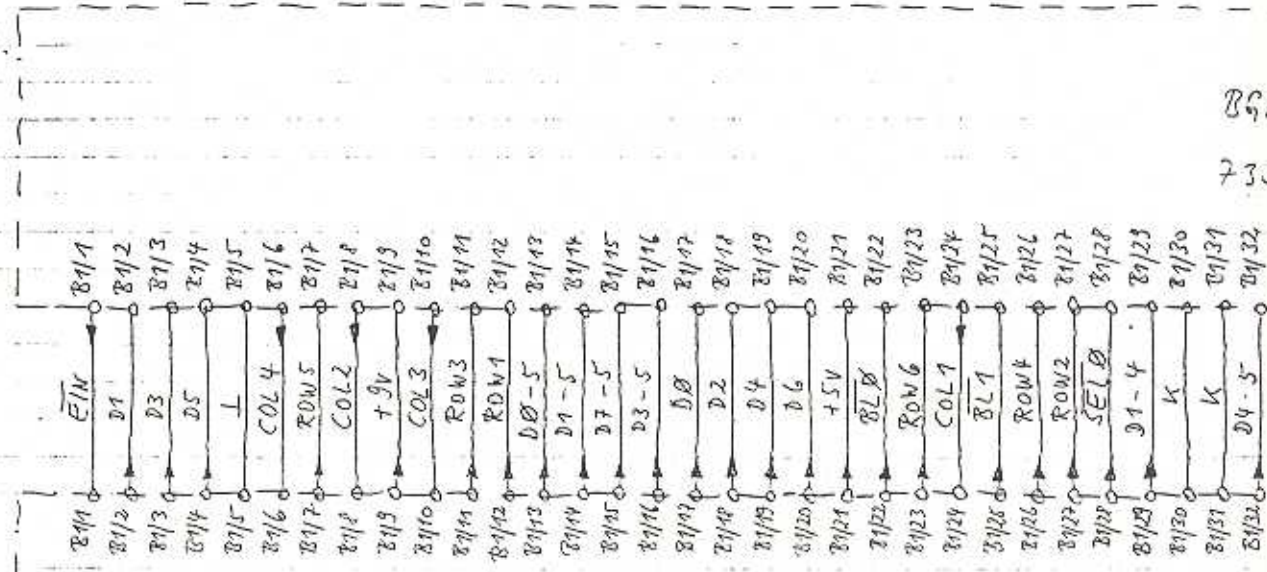 733
B1/1 B1/2 B1/3 B1/4 B1/5 B1/6 B1/7 B1/8 B1/9 B1/10 B1/11 B1/12 B1/13 B1/14 B1/15 B1/16 B1/17 B1/18 B1/19 B1/20 B1/21 B1/22 B1/23 B1/24 B1/25 B1/26 B1/27 B1/28 B1/29 B1/30 B1/31 B1/32
E̅I̅N̅ D1 D3 D5 ⊥ COL4 ROW5 COL2 +9V COL3 ROW3 ROW1 DØ-5 D1-5 D7-5 D3-5 DØ D2 D4 D6 +5V B̅L̅Ø̅ ROW6 COL1 B̅L̅1̅ ROW4 ROW2 S̅E̅L̅Ø̅ D1-4 K K D4-5
B1/1 B1/2 B1/3 B1/4 B1/5 B1/6 B1/7 B1/8 B1/9 B1/10 B1/11 B1/12 B1/13 B1/14 B1/15 B1/16 B1/17 B1/18 B1/19 B1/20 B1/21 B1/22 B1/23 B1/24 B1/25 B1/26 B1/27 B1/28 B1/29 B1/30 B1/31 B1/32